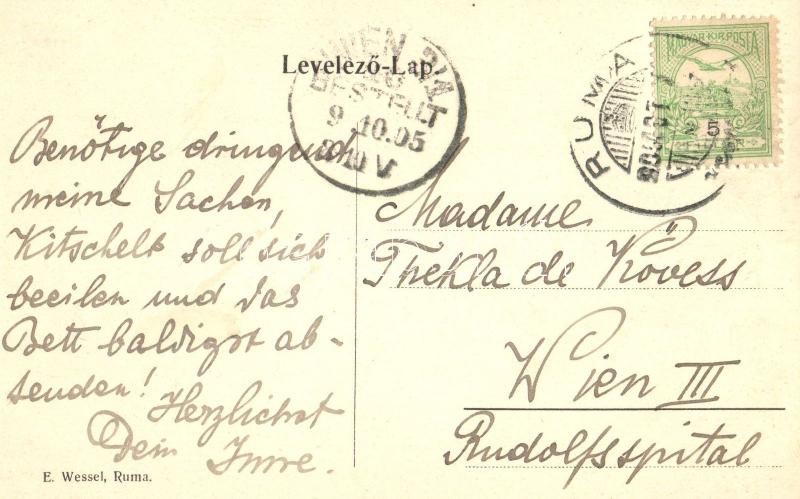 Levelező-Lap.
MAGYAR·KIR·POSTA
RUMA
WIEN
BESTELLT
9 10.05
Benötige dringend
meine Sachen,
Kitschelt soll sich
beeilen und das
Bett baldigst ab-
senden! Herzlichst
Dein Imre.
Madame
Thekla de Kövess
Wien III
Rudolfsspital
E. Wessel, Ruma.